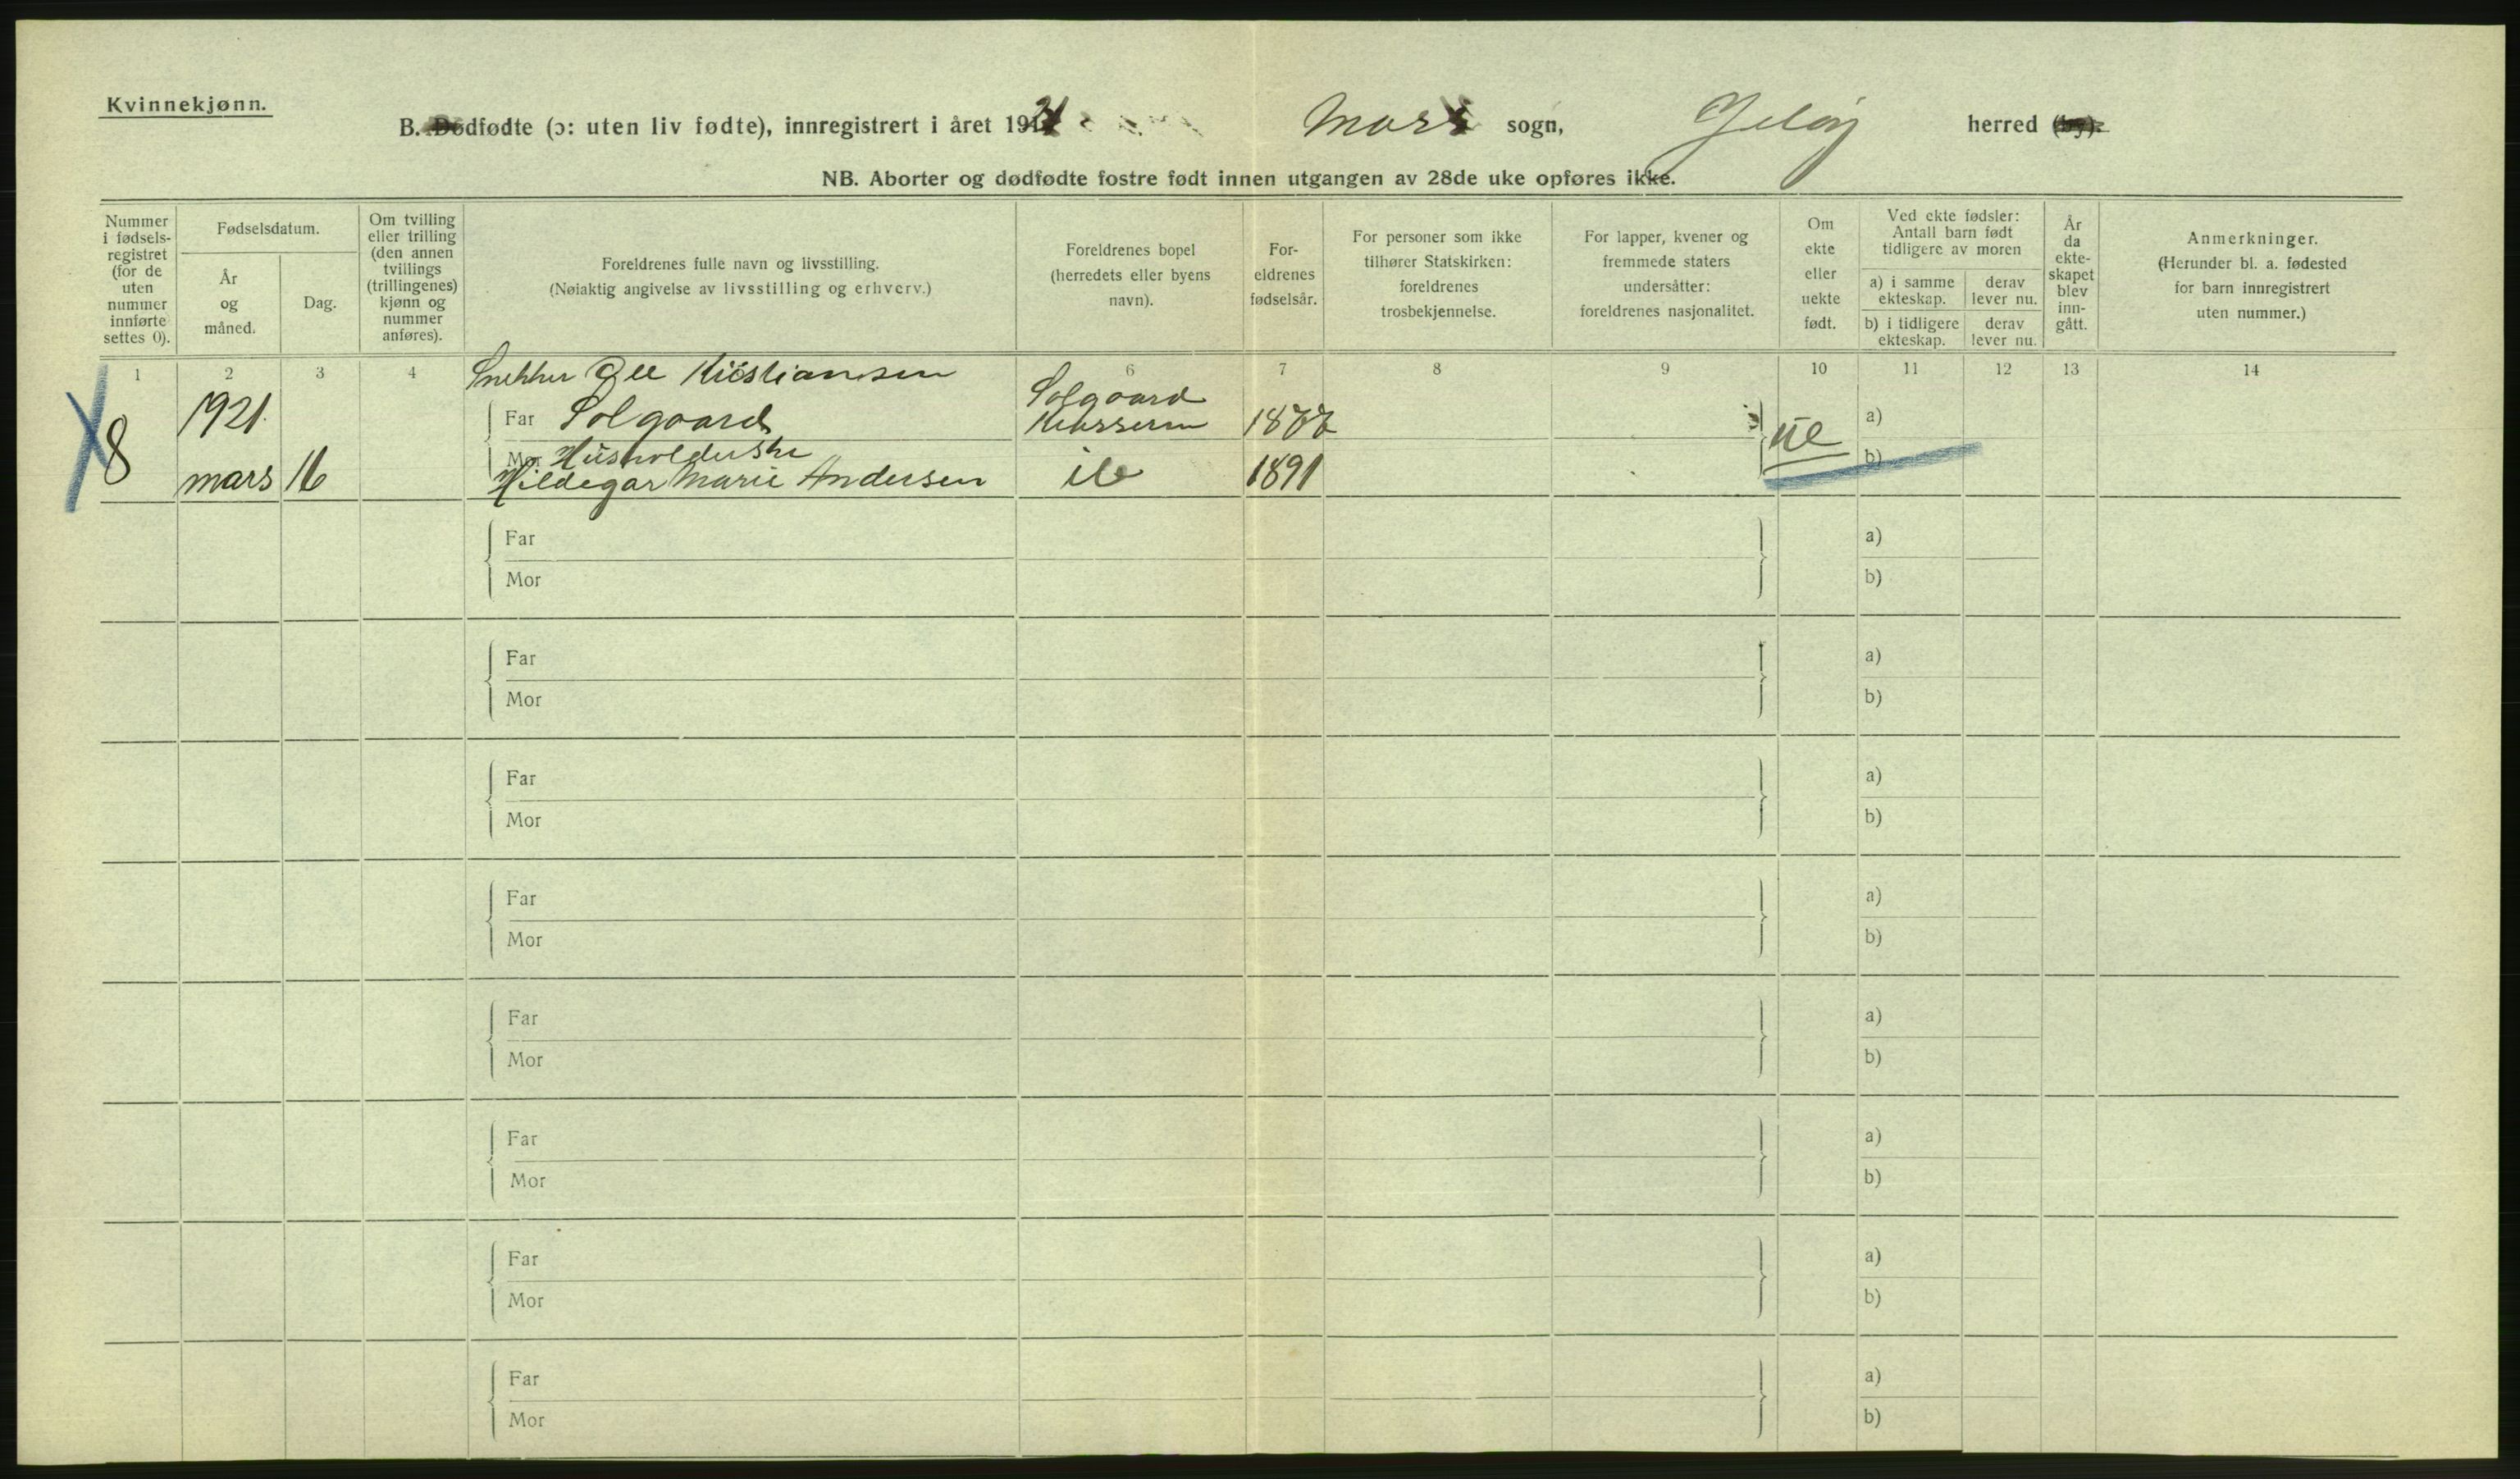 Kvinnekjønn.
B. Dødfødte (ɔ: uten liv fødte), innregistrert i året 1921 Moss sogn, Jeløy herred (by).
NB. Aborter og dødfødte fostre født innen utgangen av 28de uke opføres ikke.
Nummer i fødselsregistret (for de uten nummer innførte settes 0).
Fødselsdatum.
År og måned.
Dag.
Om tvilling eller trilling (den annen tvillings (trillingenes) kjønn og nummer anføres).
Foreldrenes fulle navn og livsstilling.
(Nøiaktig angivelse av livsstilling og erhverv.)
Foreldrenes bopel (herredets eller byens navn).
Foreldrenes fødselsår.
For personer som ikke tilhører Statskirken: foreldrenes trosbekjennelse.
For lapper, kvener og fremmede staters undersåtter: foreldrenes nasjonalitet.
Om ekte eller uekte født.
Ved ekte fødsler: Antall barn født tidligere av moren
a) i samme ekteskap.
derav lever nu.
b) i tidligere ekteskap.
derav lever nu.
År da ekteskapet blev inngått.
Anmerkninger.
(Herunder bl. a. fødested for barn innregistrert uten nummer.)
1 2 3 4 6 7 8 9 10 11 12 13 14
Snekker Ole Kristiansen
8 1921 Far Solgaard Solgaard 1877 ue a)
Mor Husholderske b)
mars 16 Hildegar Marie Andersen ib 1891
Far a)
Mor b)
Far a)
Mor b)
Far a)
Mor b)
Far a)
Mor b)
Far a)
Mor b)
Far a)
Mor b)
Far a)
Mor b)
Far a)
Mor b)